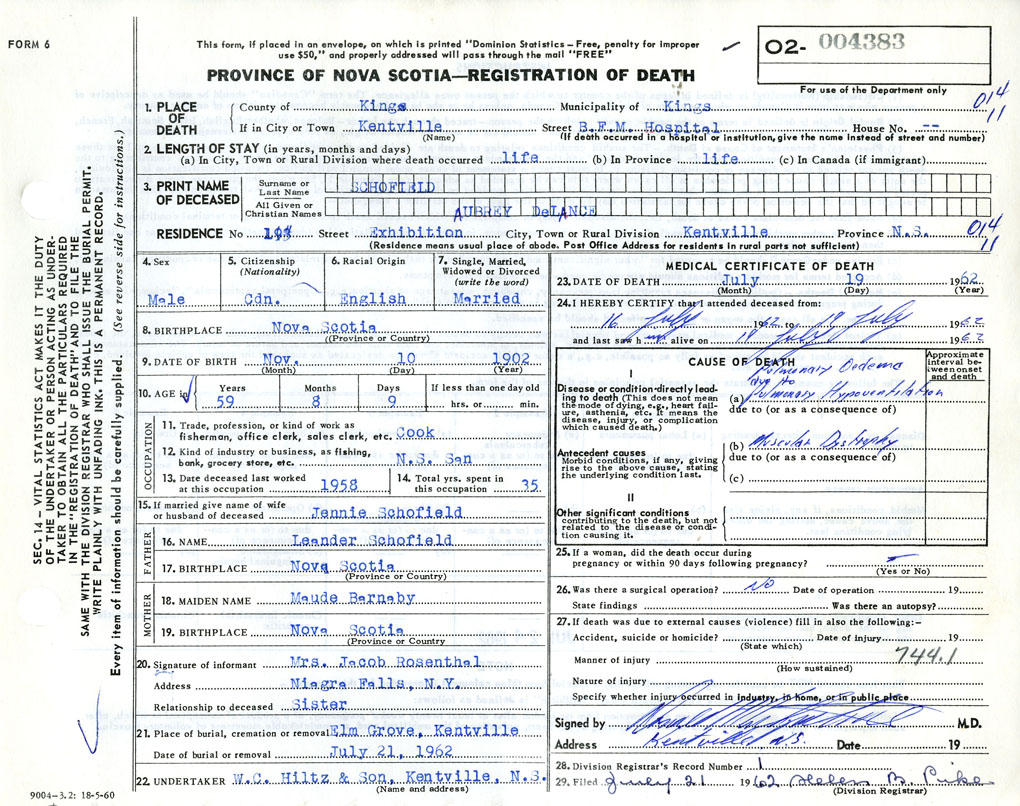 FORM 6
This form, if placed in an envelope, on which is printed "Dominion Statistics – Free, penalty for improper
use $50," and properly addressed will pass through the mail "FREE"
O2- 004383
For use of the Department only
PROVINCE OF NOVA SCOTIA—REGISTRATION OF DEATH
1. PLACE OF DEATH
County of Kings Municipality of Kings
014
11
If in City or Town Kentville Street B.F.M. Hospital House No. --
(Name) (If death occurred in a hospital or institution, give the name instead of street and number)
2. LENGTH OF STAY (in years, months and days)
(a) In City, Town or Rural Division where death occurred life (b) In Province life (c) In Canada (if immigrant)
3. PRINT NAME OF DECEASED
Surname or Last Name SCHOFIELD
All Given or Christian Names AUBREY DeLANCE
RESIDENCE No Street Exhibition City, Town or Rural Division Kentville Province N.S.
014
11
(Residence means usual place of abode. Post Office Address for residents in rural parts not sufficient)
4. Sex Male
5. Citizenship (Nationality) Cdn.
6. Racial Origin English
7. Single, Married, Widowed or Divorced (write the word) Married
8. BIRTHPLACE Nova Scotia
(Province or Country)
9. DATE OF BIRTH Nov. 10 1902
(Month) (Day) (Year)
10. AGE in Years 59 Months 8 Days 9 If less than one day old hrs. or min.
OCCUPATION
11. Trade, profession, or kind of work as
fisherman, office clerk, sales clerk, etc. Cook
12. Kind of industry or business, as fishing,
bank, grocery store, etc. N.S. San
13. Date deceased last worked
at this occupation 1958
14. Total yrs. spent in
this occupation 35
15. If married give name of wife
or husband of deceased Jennie Schofield
FATHER
16. NAME Leander Schofield
17. BIRTHPLACE Nova Scotia
(Province or Country)
MOTHER
18. MAIDEN NAME Maude Barnaby
19. BIRTHPLACE Nova Scotia
(Province or Country
20. Signature of informant Mrs. Jacob Rosenthal
Address Niagra Falls, N.Y.
Relationship to deceased Sister
21. Place of burial, cremation or removal Elm Grove, Kentville
Date of burial or removal July 21, 1962
22. UNDERTAKER W.C. Hiltz & Son, Kentville, N.S.
(Name and address)
MEDICAL CERTIFICATE OF DEATH
23. DATE OF DEATH July 19 1962
(Month) (Day) (Year)
24. I HEREBY CERTIFY that I attended deceased from:
16 July 1962 to 19 July 1962
and last saw h im alive on 19 July 1962
CAUSE OF DEATH
Approximate interval between onset and death
I
Disease or condition directly leading
to death (This does not mean
the mode of dying, e.g., heart failure,
asthenia, etc. It means the
disease, injury, or complication
which caused death.)
Pulmonary Oedema
due to
(a) Pulmonary Hypoventilation
due to (or as a consequence of)
Antecedent causes
Morbid conditions, if any, giving
rise to the above cause, stating
the underlying condition last.
(b) Muscular Dystrophy
due to (or as a consequence of)
(c)
II
Other significant conditions
contributing to the death, but not
related to the disease or condition
causing it.
25. If a woman, did the death occur during
pregnancy or within 90 days following pregnancy? –
(Yes or No)
26. Was there a surgical operation? No Date of operation 19
State findings Was there an autopsy?
27. If death was due to external causes (violence) fill in also the following:–
Accident, suicide or homicide? Date of injury 19
(State which)
744.1
Manner of injury
(How sustained)
Nature of injury
Specify whether injury occurred in industry, in home, or in public place
Signed by M.D.
Address Kentville N.S. Date 19
28. Division Registrar's Record Number 1
29. Filed July 21 1962 Helen B. Pike
(Division Registrar)
SEC. 14 – VITAL STATISTICS ACT MAKES IT THE DUTY
OF THE UNDERTAKER OR PERSON ACTING AS UNDERTAKER
TO OBTAIN ALL THE PARTICULARS REQUIRED
IN THE "REGISTRATION OF DEATH" AND TO FILE THE
SAME WITH THE DIVISION REGISTRAR WHO SHALL ISSUE THE BURIAL PERMIT.
WRITE PLAINLY WITH UNFADING INK. THIS IS A PERMANENT RECORD.
Every item of information should be carefully supplied. (See reverse side for instructions.)
9004–3.2: 18-5-60